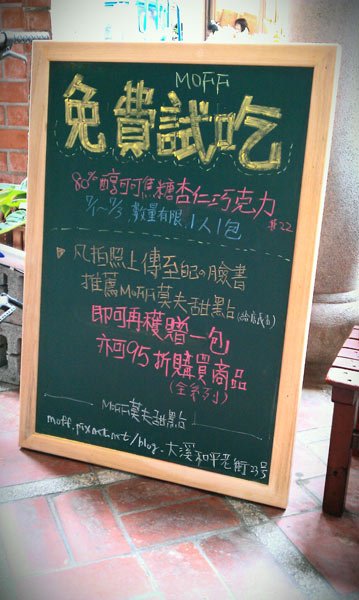 MOFF
免費試吃
80%醇可可焦糖杏仁巧克力
9/1~9/3 數量有限 1人1包 $22
凡拍照上傳至自己の臉書
推薦MOFF莫夫甜點(給店員看)
即可再獲贈一包
亦可95折購買商品
(全系列)
MOFF莫夫甜點
moff.pixnet.net/blog. 大溪和平老街23号